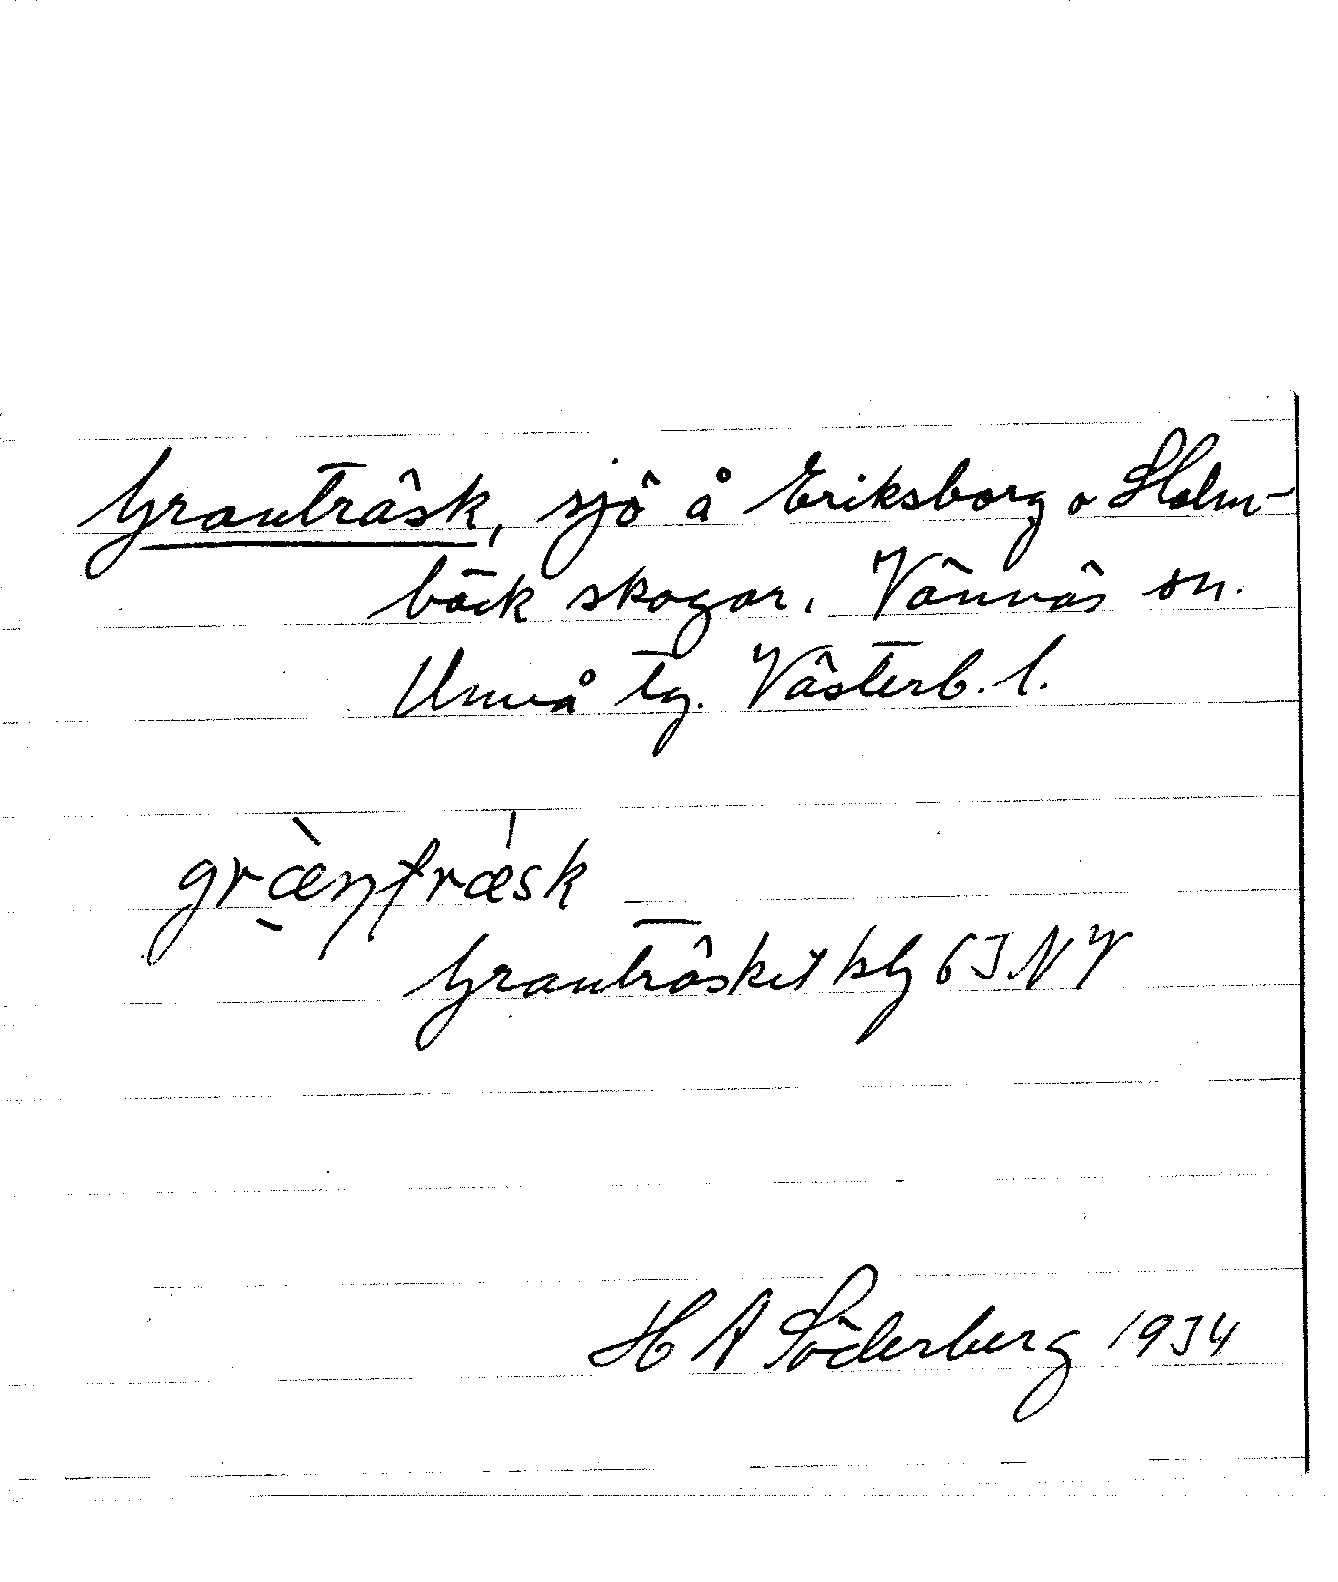 Granträsk, sjö å Eriksborg o Holm-
bäck skogar. Vännäs sn.
Umeå tg. Västerb. l.
græ̀ntræsk
Granträsket kbl 53 NV
H A Söderberg 1934